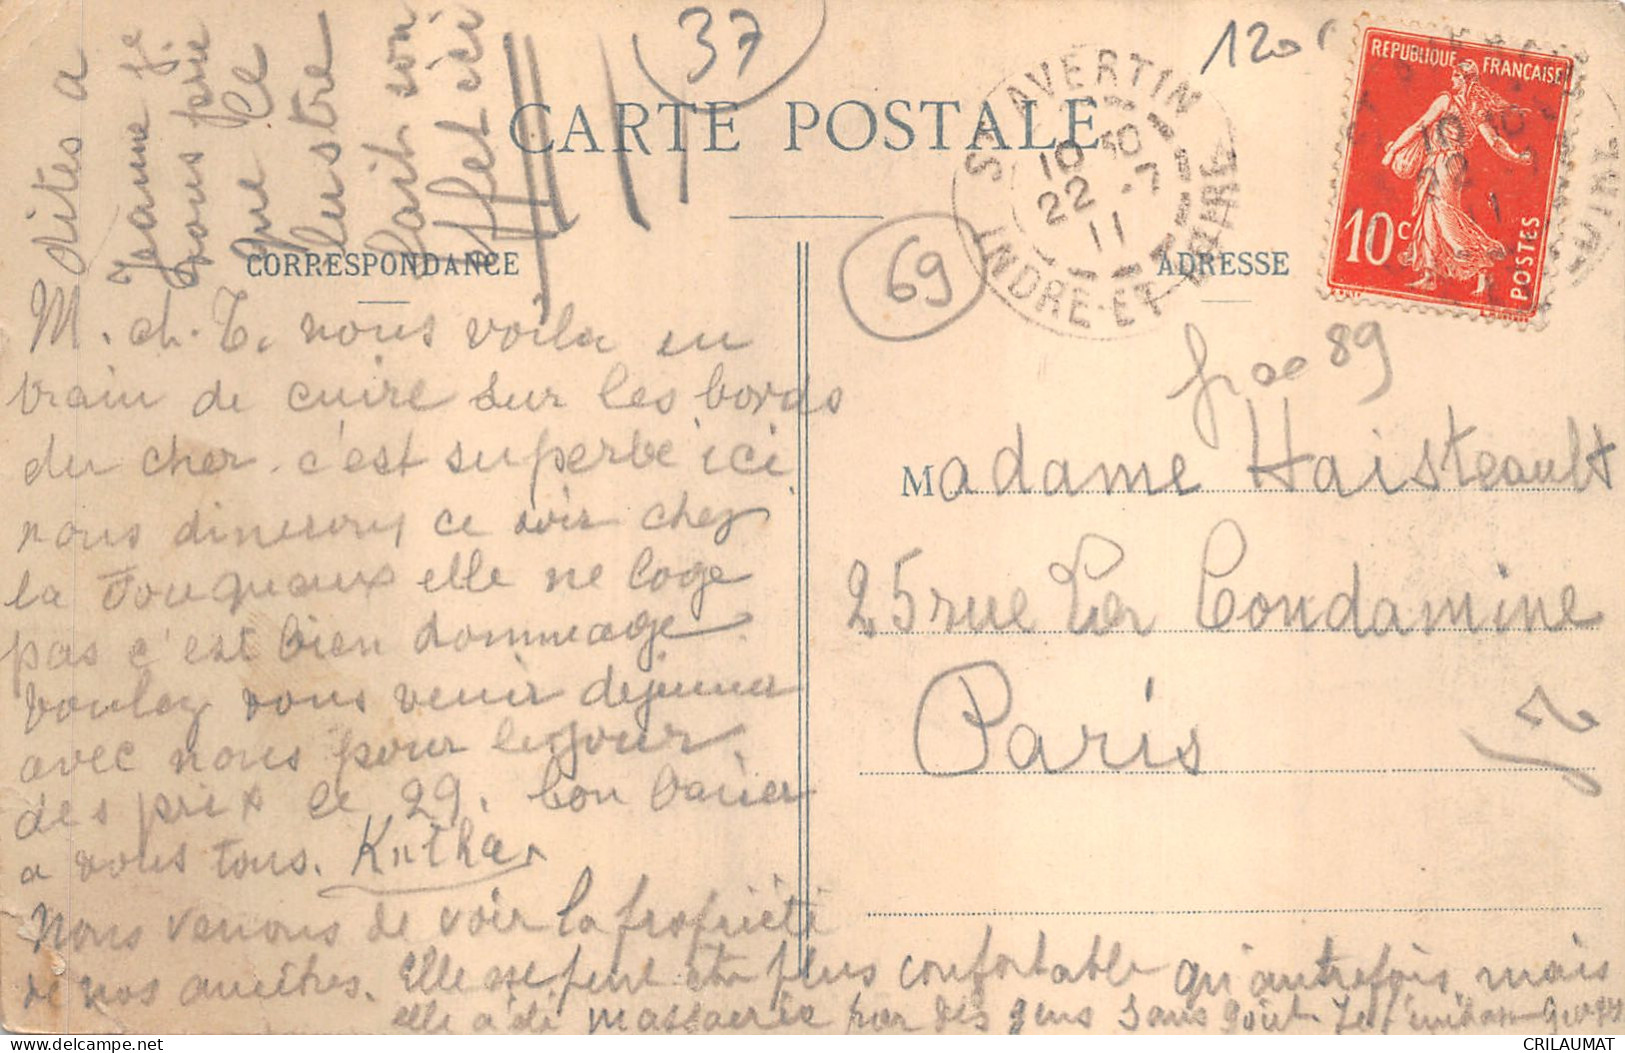 37
1200
RÉPUBLIQUE FRANÇAISE
10c
POSTES
CARTE POSTALE
ST AVERTIN
10 30
22 - 7
11
INDRE-ET-LOIRE
69
CORRESPONDANCE
ADRESSE
dites a
Jeanne je
vous prie
que le
lustre
fait son
effet ici
M. ch. T. nous voila en
train de cuire sur les bords
du cher. c'est superbe ici
nous dinerons ce soir chez
la Fouqueaux elle ne loge
pas c'est bien dommage
voulez vous venir dejeuner
avec nous pour le jour
des prix le 29. bon baiser
a vous tous.
Nous venons de voir la propriété
de nos ancêtres. Elle ne peut être plus confortable qu'autrefois mais
elle a été massacrée par des gens sans goût. Je t'embrasse Georges
89
Madame Haisteault
25 rue La Condamine
Paris
17
CRILAUMAT